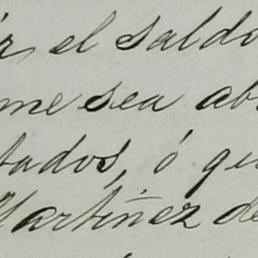 el saldo
me sea ab
tados, ó qu
Martinez de